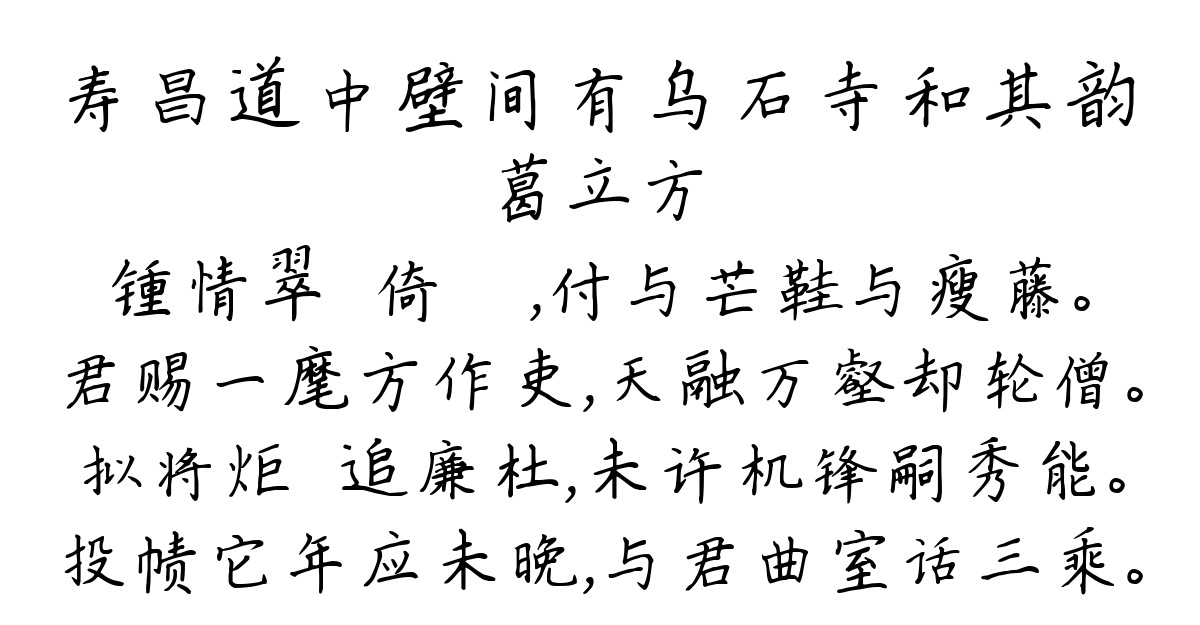 寿昌道中壁间有乌石寺和其韵
葛立方
锺情翠 倚 ,付与芒鞋与瘦藤。
君赐一麾方作吏,天融万壑却轮僧。
拟将炬 追廉杜,未许机锋嗣秀能。
投帻它年应未晚,与君曲室话三乘。